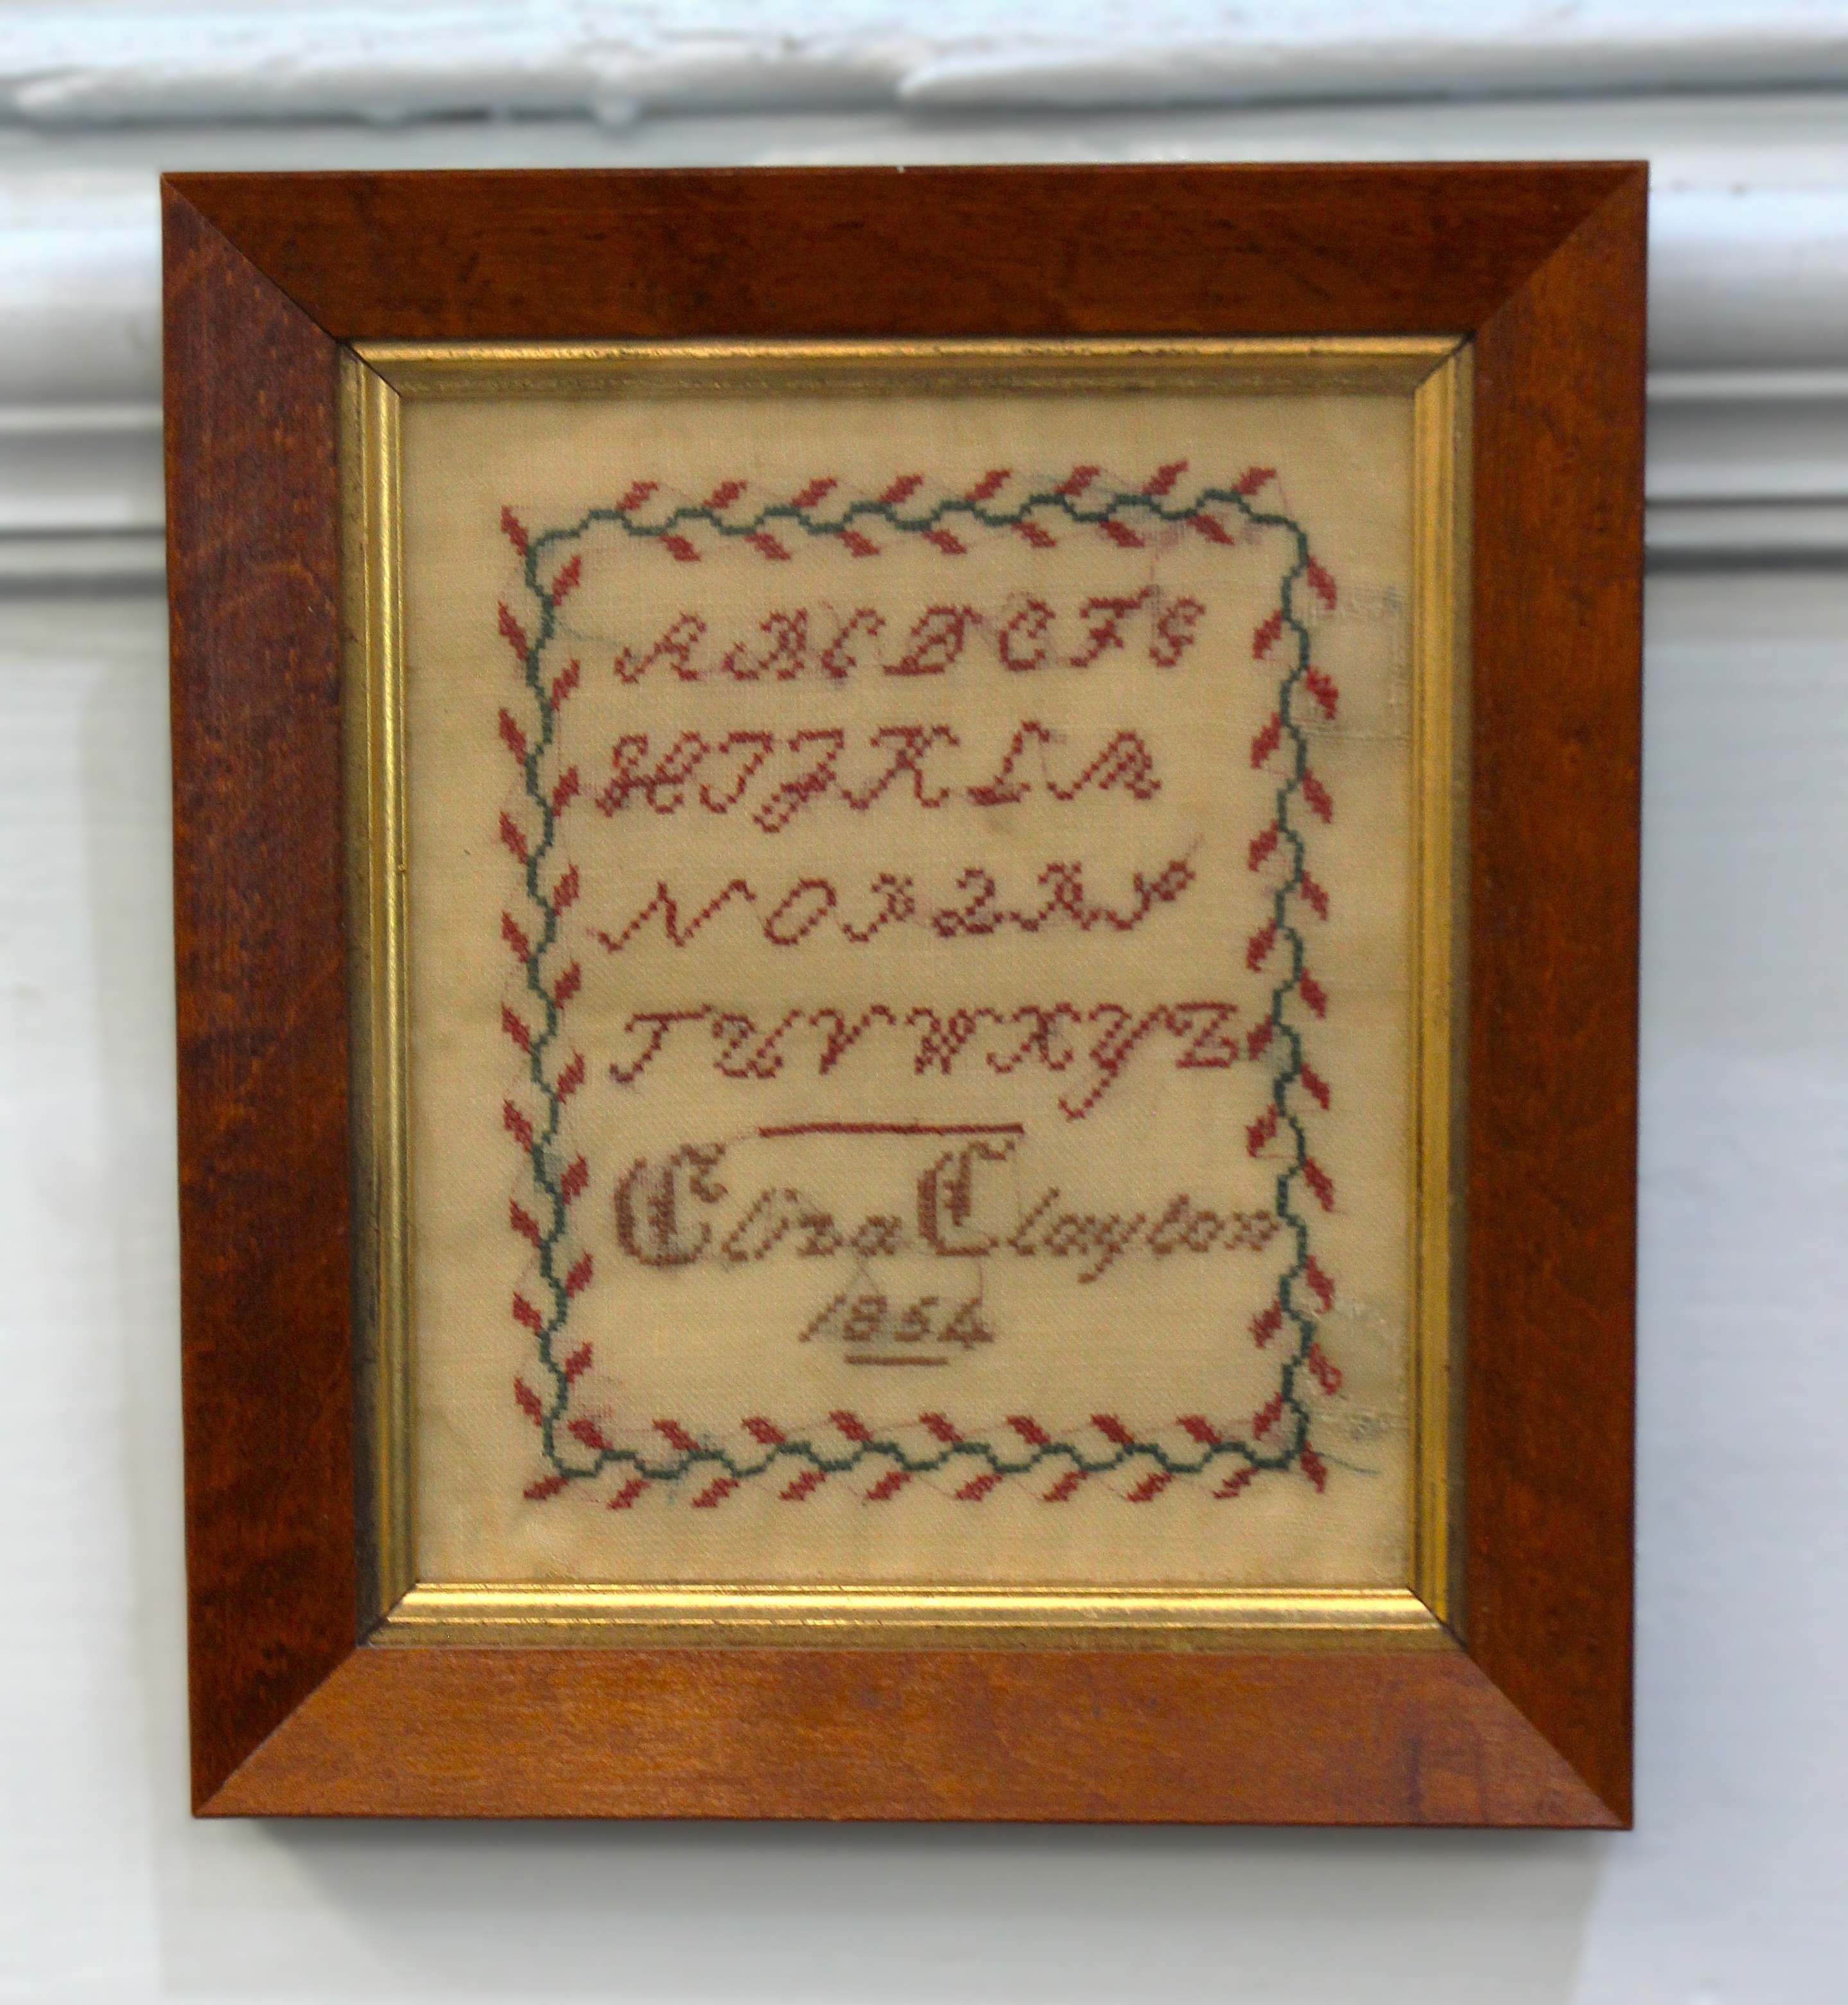 A B C D E F G
H I J K L M
N O P Q R S
T U V W X Y Z
Eliza Clayton
1854